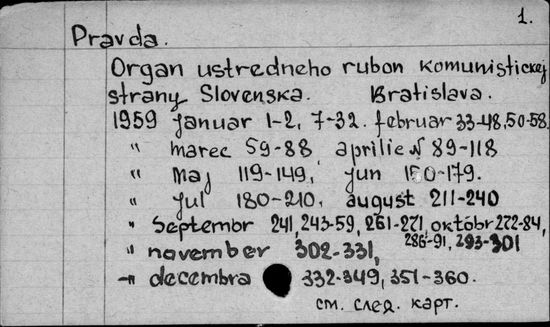 1.
Pravda.
Organ ustredneho rubon komunistickej
strany Slovenska. Bratislava.
1959 januar 1-2, 7-32. februar 33-48, 50-58,
" marec 59-88 aprilie N 89-118
" maj 119-149, jun 150-179.
" jul 180-210, august 211-240
" septembr 241, 243-59, 261-271, október 272-84,
286-91, 293-301
" november 302-331,
-"- decembra 332-349, 351-360.
см. след. карт.